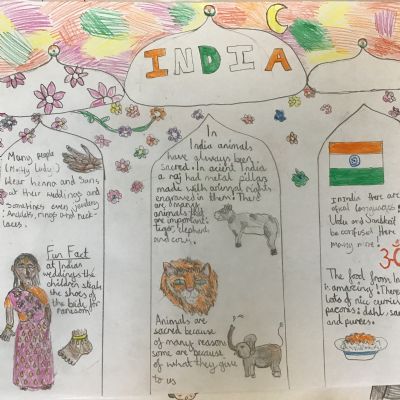 INDIA
Many people
(Mostly lady's)
Wear henna and Saris
at their weddings and
Sometimes even jewlery
Anklets, rings and neck-
laces.
Fun Fact
at Indian
weddings the
children steals
the shoes of
the bride for
ransom!
In
India animals
have always been
sacred. In acient India
a raj had metal pillars
made with animal rights
engraved in them. There
are 3 main
animals that
are important:
tiger, elephant
and cow.
Animals are
sacred because
of many reasons
some are because
of what they give
to us
In India there are
Urdu and Sanskrit
be confused there
many more!
The food from In
is amazing! There
lots of nice curries
dahl, sa
and purees.
ॐ